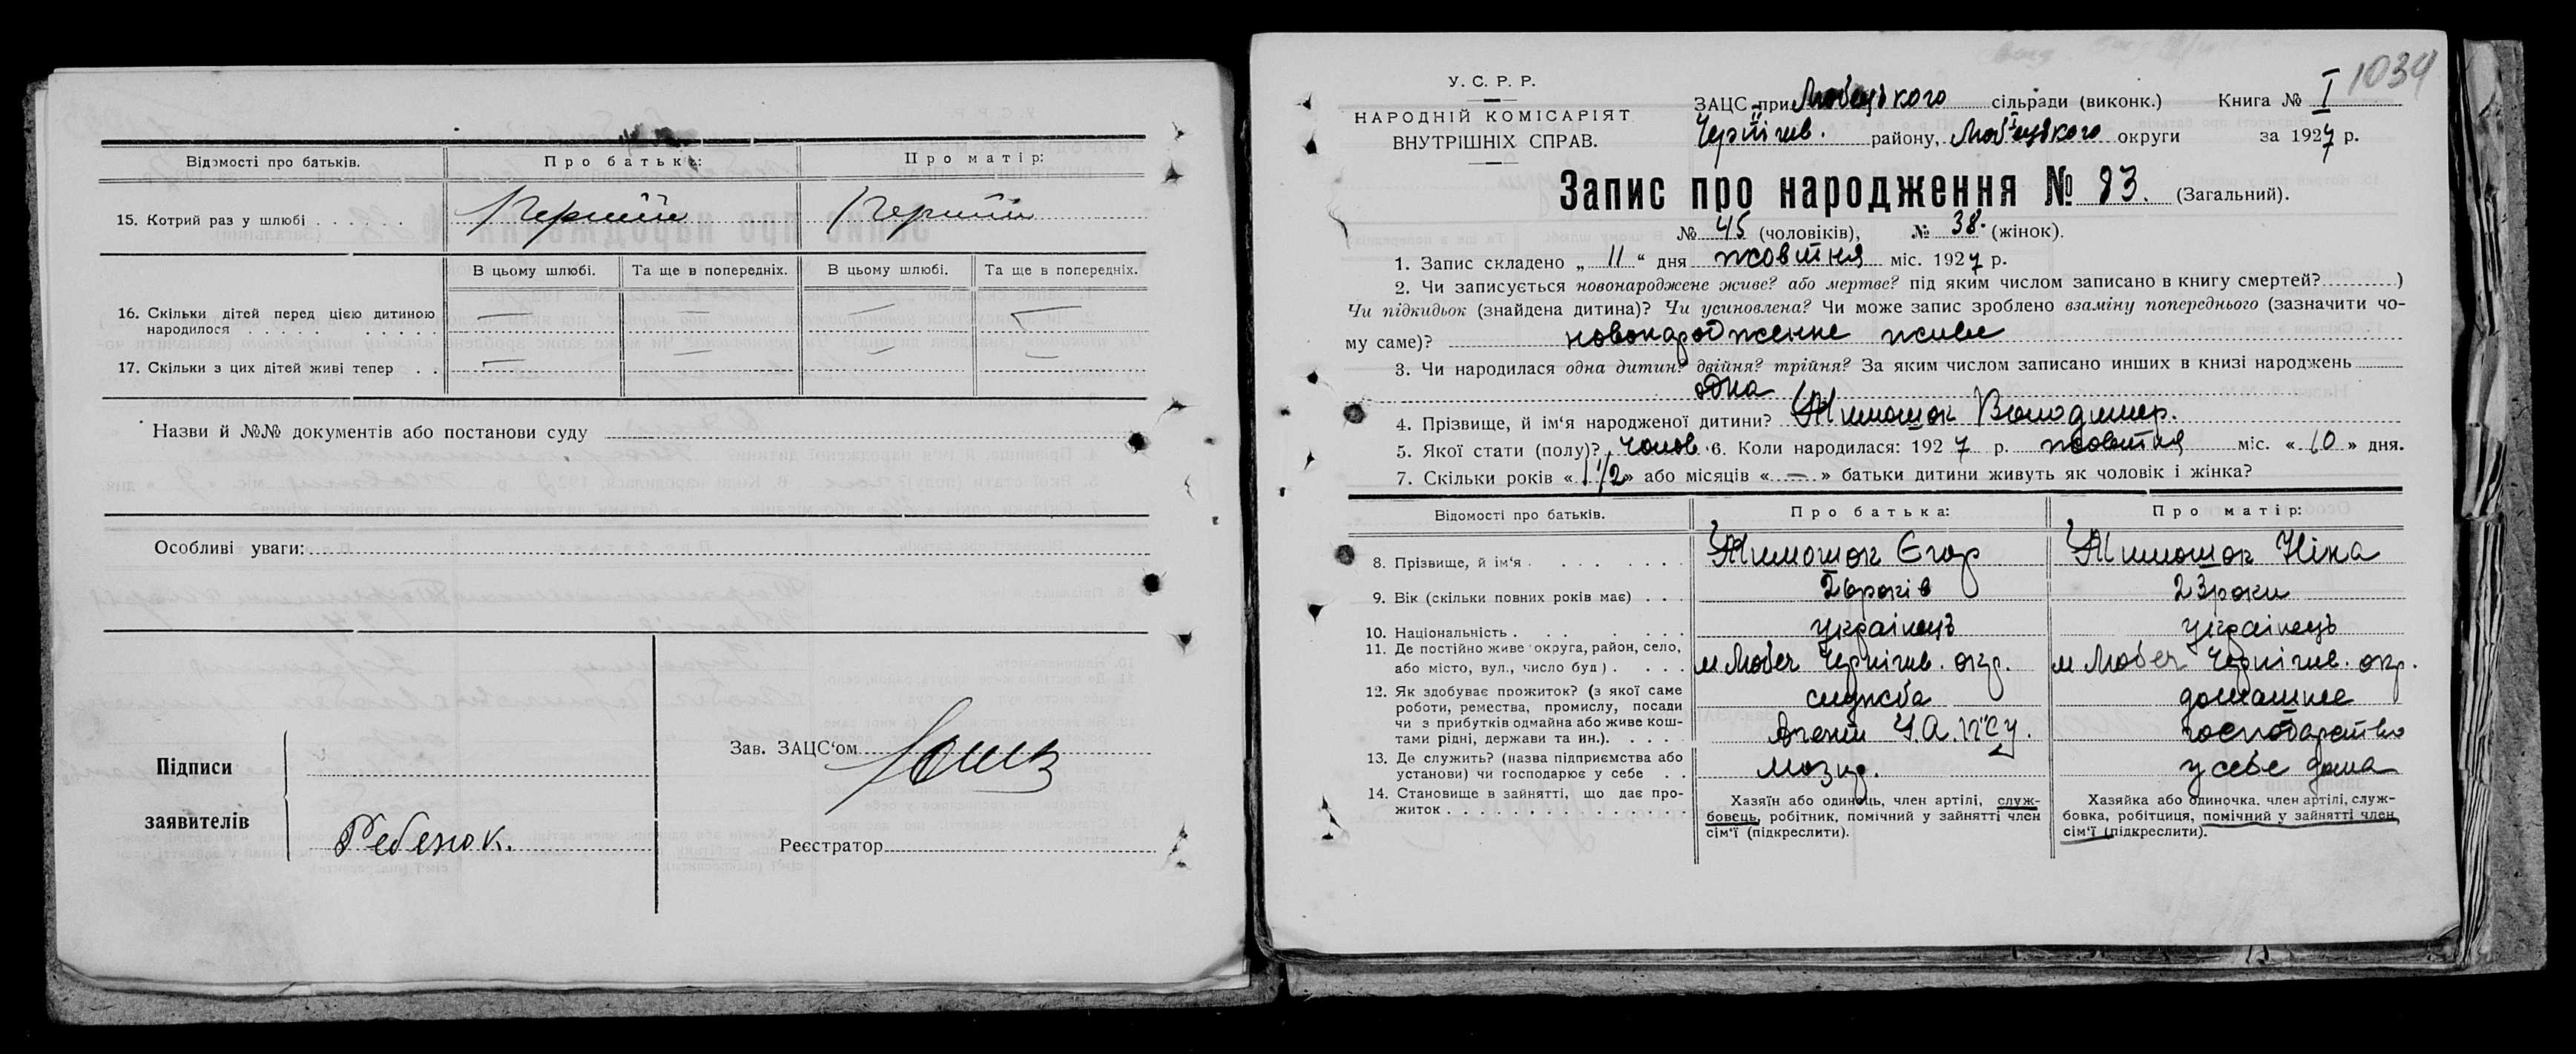 Відомості про батьків.
Про батька:
Про матір:
15. Котрий раз у шлюбі . . . . . .
Перший
Перший
В цьому шлюбі.
Та ще в попередніх.
В цьому шлюбі.
Та ще в попередніх.
16. Скільки дітей перед цією дитиною
народилося . . . . .
— — — —
17. Скільки з цих дітей живі тепер . .
— — — —
Назви й №№ документів або постанови суду
Особливі уваги:
Підписи
заявителів
Ребенок.
Зав. ЗАЦС'ом
Реєстратор
1034
У. С. Р. Р.
НАРОДНІЙ КОМІСАРІЯТ
ВНУТРІШНІХ СПРАВ.
ЗАЦС при Любецького сільради (виконк.) Книга № I
Чернігів. району, Любецького округи за 1927 р.
Запис про народження № 83. (Загальний).
№ 45 (чоловіків), № 38. (жінок).
1. Запис складено „ 11 “ дня жовтня міс. 1927 р.
2. Чи записується новонароджене живе? або мертве? під яким числом записано в книгу смертей? )
Чи підкидьок (знайдена дитина)? Чи усиновлена? Чи може запис зроблено взаміну попереднього (зазначити чо-
му саме)? новонродженне живе
3. Чи народилася одна дитин? двійня? трійня? За яким числом записано инших в книзі народжень
одна
4. Прізвище, й ім'я народженої дитини? Тимошок Володимер.
5. Якої стати (полу)? чолов. 6. Коли народилася: 1927 р. жовтня міс. « 10 » дня.
7. Скільки років « 1 1/2 » або місяців « — » батьки дитини живуть як чоловік і жінка?
Відомості про батьків.
Про батька:
Про матір:
8. Прізвище, й ім'я . . . . . . .
Тимошок Єгор
Тимошок Ніна
9. Вік (скільки повних років має) . . .
26 років
23 роки
10. Національність . . . . . .
українець
українець
11. Де постійно живе округа, район, село,
або місто, вул., число буд) . . . .
м Любеч Чернігів. окр.
м Любеч Чернігів. окр.
12. Як здобуває прожиток? (з якої саме
роботи, ремества, промислу, посади
чи з прибутків одмайна або живе кош-
тами рідні, держави та ин.). . . . .
служба
Агент
домашнє
господарство
13. Де служить? (назва підприємства або
установи) чи господарює у себе . .
у себе дома
14. Становище в зайнятті, що дає про-
житок . . . . . . . . . . . . . .
Хазяїн або одинець, член артілі, служ-
бовець, робітник, помічний у зайнятті член
сім'ї (підкреслити).
Хазяйка або одиночка, член артілі, служ-
бовка, робітциця, помічний у зайнятті член
сім'ї (підкреслити).